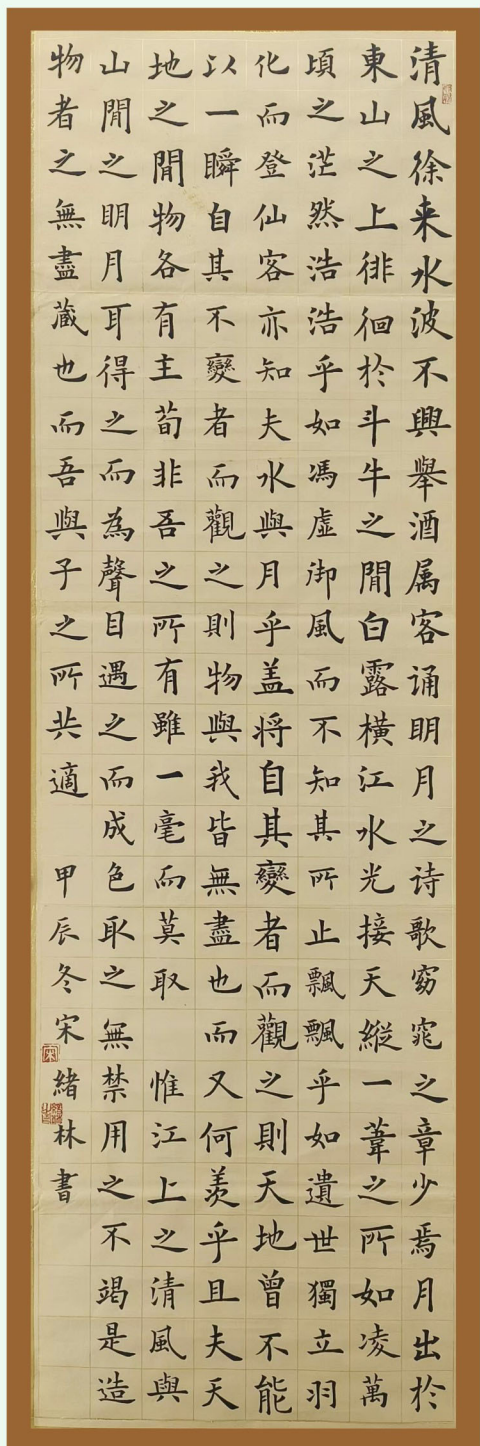 清風徐来水波不興舉酒属客诵眀月之诗歌窈窕之章少焉月出於
東山之上徘徊於斗牛之閒白露橫江水光接天縱一葦之所如凌萬
頃之茫然浩浩乎如馮虛御風而不知其所止飄飄乎如遺世獨立羽
化而登仙客亦知夫水與月乎盖将自其變者而觀之則天地曾不能
以一瞬自其不變者而觀之則物與我皆無盡也而又何羨乎且夫天
地之閒物各有主苟非吾之所有雖一毫而莫取 惟江上之清風與
山閒之眀月耳得之而為聲目遇之而成色取之無禁用之不竭是造
物者之無盡蔵也而吾與子之所共適 甲辰冬宋緒林書